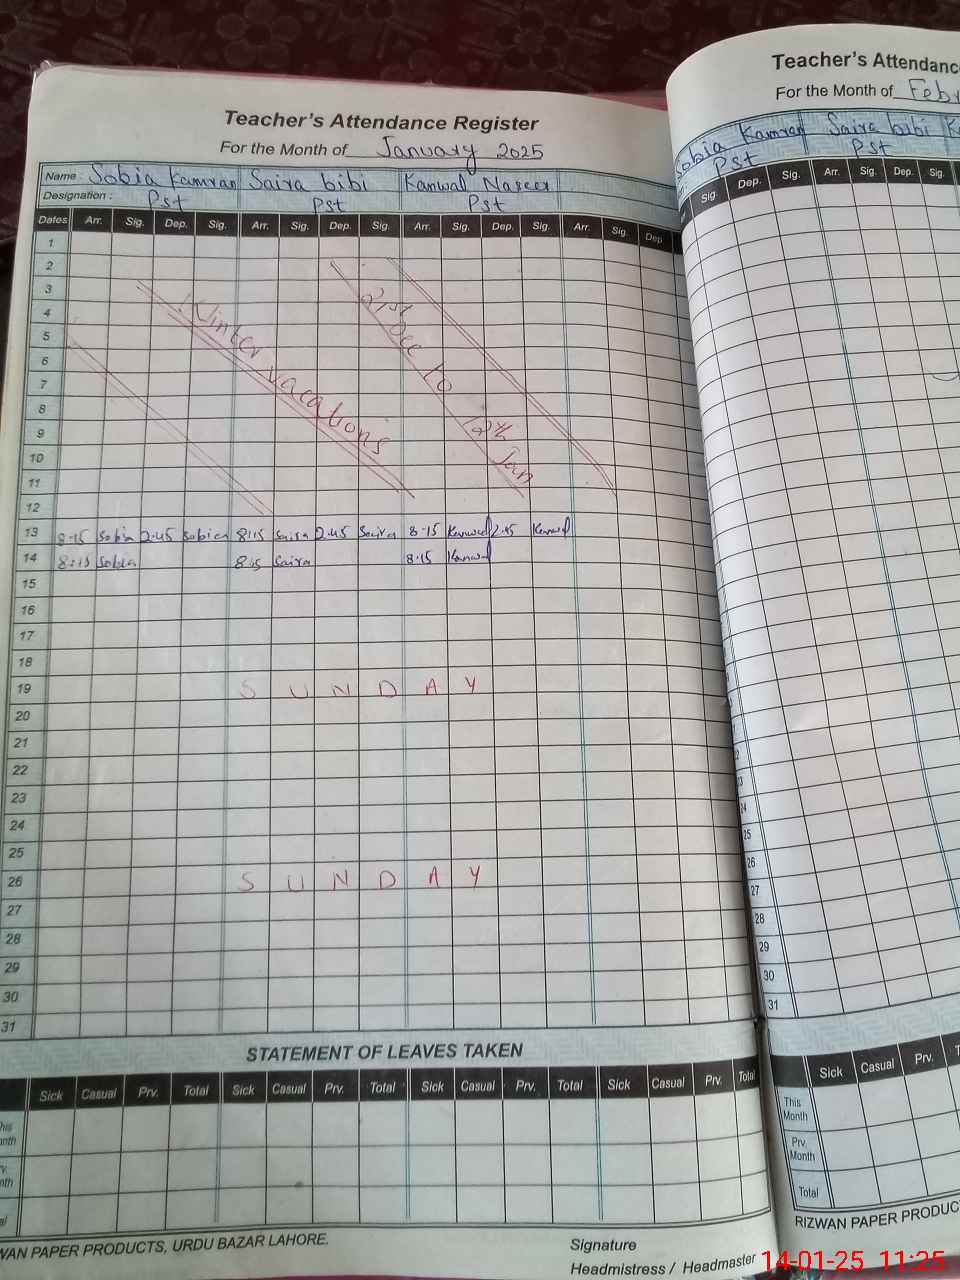 Teacher's Attendance Register
For the Month of January 2025
Name : Sobia Kamran Saira bibi Kanwal Naseer
Designation : Pst Pst Pst
Dates Arr. Sig. Dep. Sig. Arr. Sig. Dep. Sig. Arr. Sig. Dep. Sig. Arr. Sig. Dep
1
2
3
4
5
6
7
8
9
10
11
12
Winter vacations
21st Dec to 12th Jan
13 8-15 Sobia 2.45 Sobia 8:15 Saira 2.45 Saira 8-15 Kanwal 2.45 Kanwal
14 8:15 Sobia 8.15 Saira 8.15 Kanwal
15
16
17
18
19 SUNDAY
20
21
22
23
24
25
26 SUNDAY
27
28
29
30
31
STATEMENT OF LEAVES TAKEN
Sick Casual Prv. Total Sick Casual Prv. Total Sick Casual Prv. Total Sick Casual Prv. Total
RIZWAN PAPER PRODUCTS, URDU BAZAR LAHORE.
Signature
Headmistress / Headmaster
Teacher's Attendance
For the Month of Febr
Sobia Kamran Saira bibi
Pst Pst
Sig. Dep. Sig. Arr. Sig. Dep. Sig.
24
25
26
27
28
29
30
31
Sick Casual Prv.
This Month
Prv. Month
Total
RIZWAN PAPER PRODUC
14-01-25 11:25